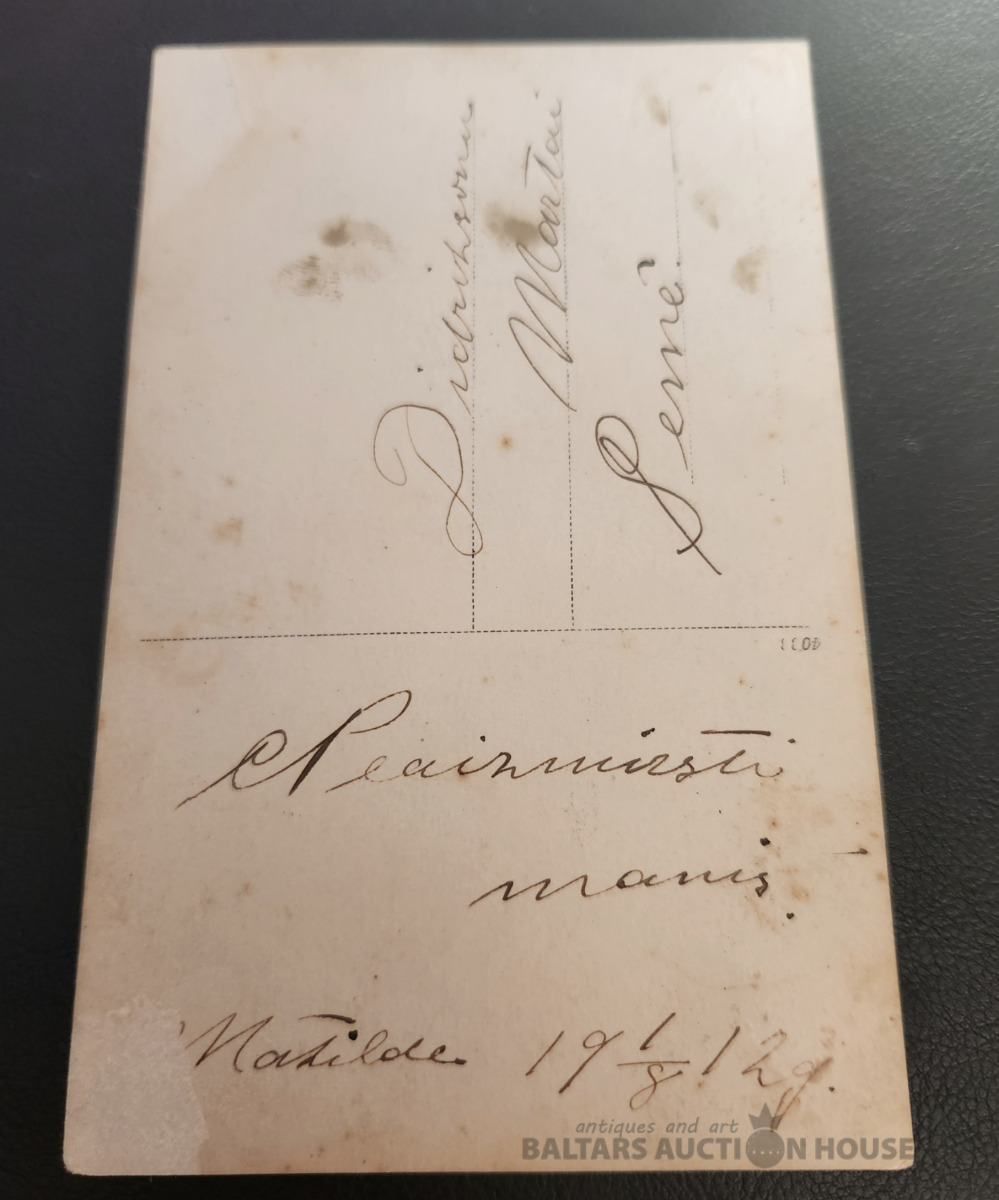 Didrihsonu
Martai
Semē.
4033
Neaizmirsti
manis.
Matilde. 19 1/8 12g.
antiques and art
BALTARS AUCTION HOUSE